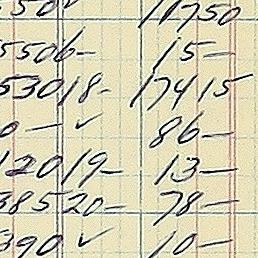 50✓ 11750
5506- 15-
53018- 17415
0-✓ 86-
12019- 13-
38520- 78-
390✓ 10-